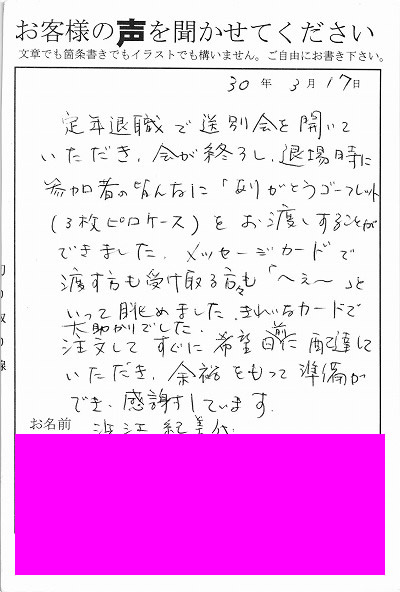 お客様の声を聞かせてください
文章でも箇条書きでもイラストでも構いません。ご自由にお書き下さい。
30年 3月 17日
定年退職で送別会を開いて
いただき、会が終了し、退場時に
参加者の皆んなに「ありがとうゴーフレット
(3枚ピロケース)をお渡しすることが
できました。メッセージカードで
渡す方も受け取る方々も「へえ〜」と
いって眺めました。きれいなカードで
大助かりでした。
注文してすぐに希望日前に配達して
いただき、余裕をもって準備が
でき、感謝しています。
お名前
切り取り線